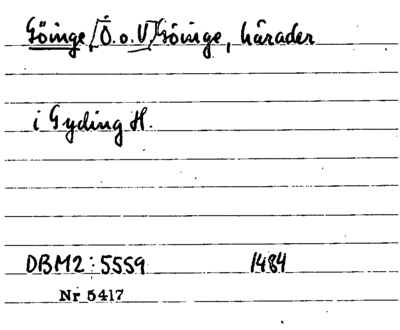 Göinge, [Ö. o. V] Göinge, härader
i Gyding H.
DBM2:5559 1484
Nr 5417